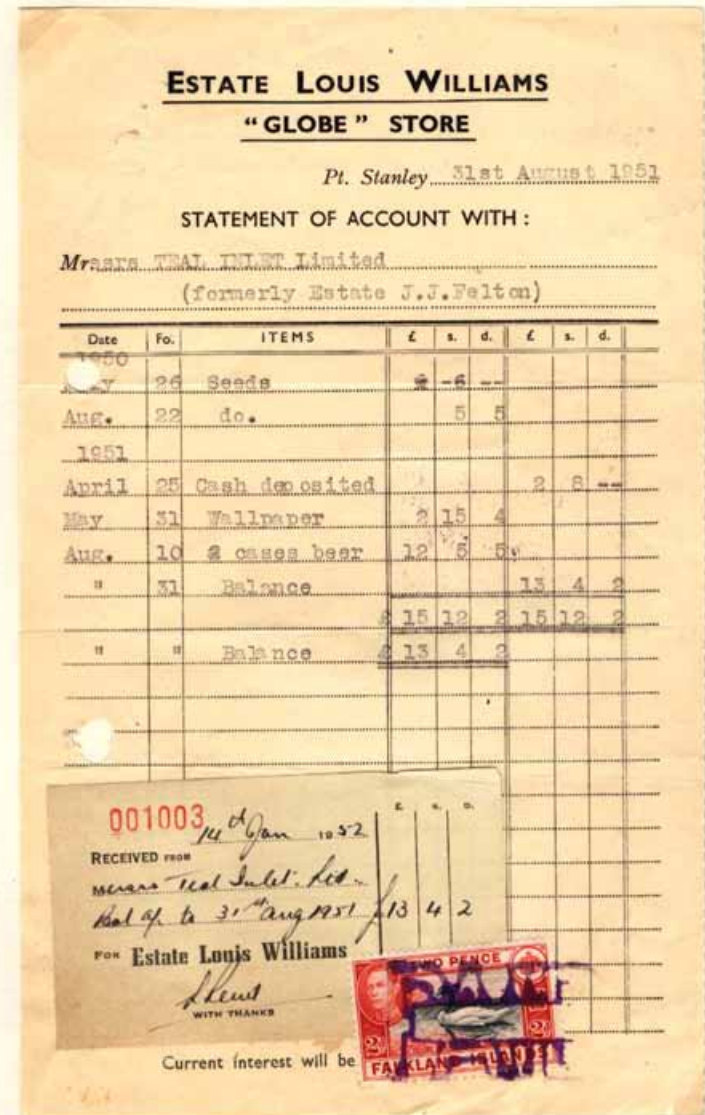 ESTATE LOUIS WILLIAMS
"GLOBE" STORE
Pt. Stanley 31st August 1951
STATEMENT OF ACCOUNT WITH :
Mrssrs TEAL INLET Limited
(formerly Estate J.J.Felton)
Date Fo. ITEMS £ s. d. £ s. d.
1950
26 Seeds -6 --
Aug. 22 do. 5 5
1951
April 25 Cash deposited 2 8 --
May 31 Wallpaper 2 15 4
Aug. 10 2 cases beer 12 5 5
" 31 Balance 13 4 2
£ 15 12 2 15 12 2
" " Balance £ 13 4 2
001003
14th Jan 1952
£ s. D.
RECEIVED FROM
Messrs Teal Inlet. Ltd.
Bal a/c to 31st Aug 1951 £13 4 2
FOR Estate Louis Williams
WITH THANKS
TWO PENCE
2d 2d
FALKLAND ISLANDS
Current interest will be